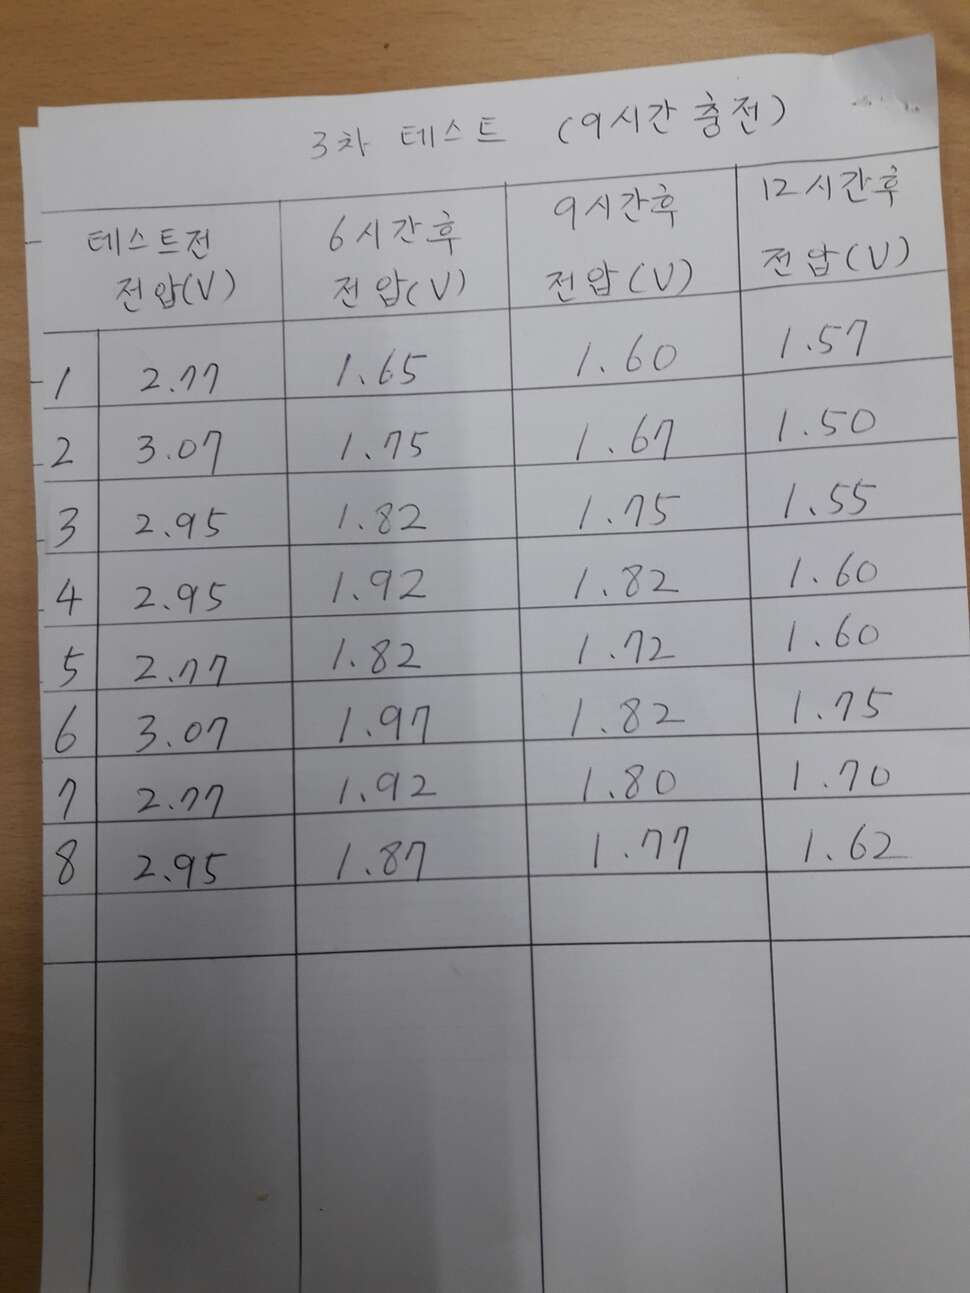 3차 테스트 (9시간 충전)
테스트전 전압(V) 6시간후 전압(V) 9시간후 전압(V) 12시간후 전압(V)
1 2.77 1.65 1.60 1.57
2 3.07 1.75 1.67 1.50
3 2.95 1.82 1.75 1.55
4 2.95 1.92 1.82 1.60
5 2.77 1.82 1.72 1.60
6 3.07 1.97 1.82 1.75
7 2.77 1.92 1.80 1.70
8 2.95 1.87 1.77 1.62